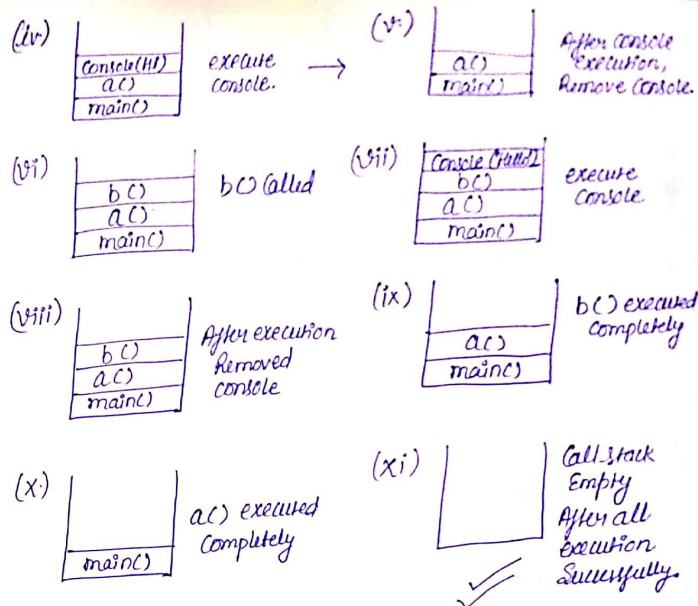 (iv)
Console(HI)
a()
main()
execute
console.
→
(v.)
a()
main()
After console
Execution,
Remove Console.
(vi)
b()
a()
main()
b() Called
(vii)
Console
b()
a()
main()
execute
Console.
(viii)
b()
a()
main()
After execution
Removed
console
(ix)
a()
main()
b() executed
Completely
(x.)
main()
a() executed
Completely
(xi)
Call stack
Empty
After all
execution
Successfully.